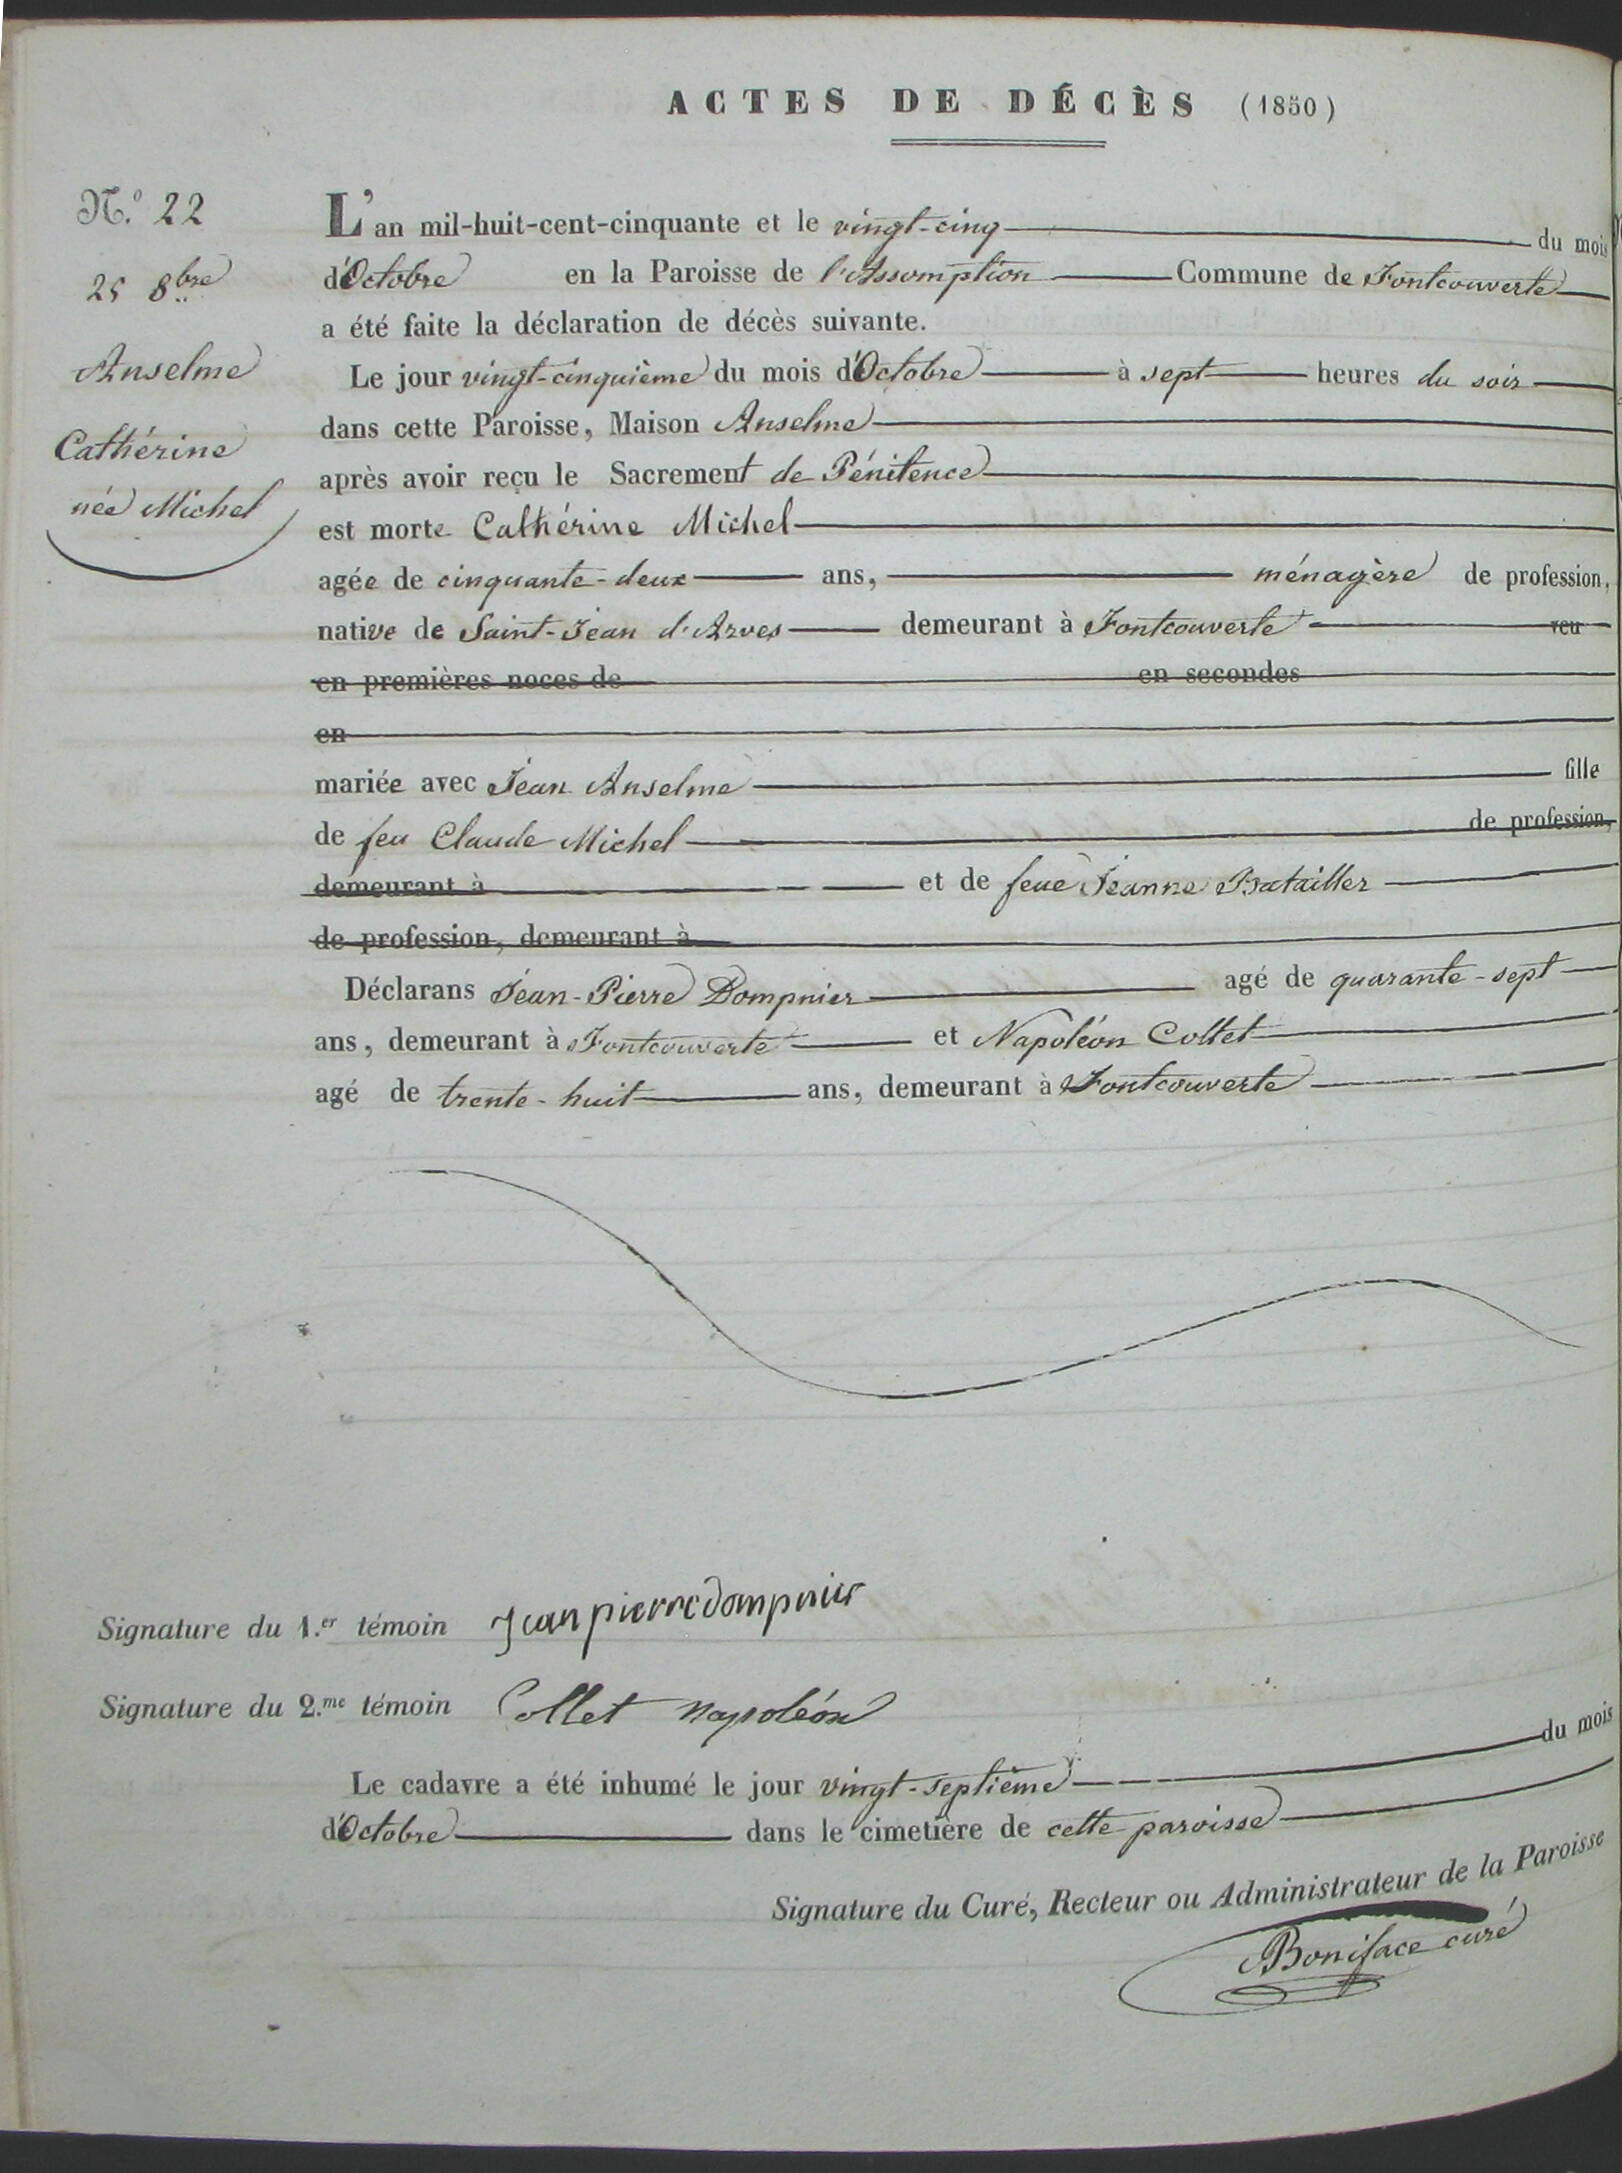 ACTES DE DÉCÈS (1850)
N.º 22
25 8bre
Anselme
Cathérine
née Michel
L'an mil-huit-cent-cinquante et le vingt-cinq du mois
d'Octobre en la Paroisse de l'Assomption Commune de Fontcouverte
a été faite la déclaration de décès suivante.
Le jour vingt-cinquième du mois d'Octobre à sept heures du soir
dans cette Paroisse, Maison Anselme
après avoir reçu le Sacrement de Pénitence
est morte Cathérine Michel
agée de cinquante-deux ans, ménagère de profession,
native de Saint-Jean d'Arves demeurant à Fontcouverte veu
en premières noces de en secondes
en
mariée avec Jean Anselme fille
de feu Claude Michel de profession,
demeurant à et de feue Jeanne Batailler
de profession, demeurant à
Déclarans Jean-Pierre Dompnier agé de quarante-sept
ans, demeurant à Fontcouverte et Napoléon Collet
agé de trente-huit ans, demeurant à Fontcouverte
Signature du 1.er témoin Jean pierre dompnier
Signature du 2.me témoin Collet napoléon
Le cadavre a été inhumé le jour vingt-septième du mois
d'Octobre dans le cimetière de cette paroisse
Signature du Curé, Recteur ou Administrateur de la Paroisse
Boniface curé